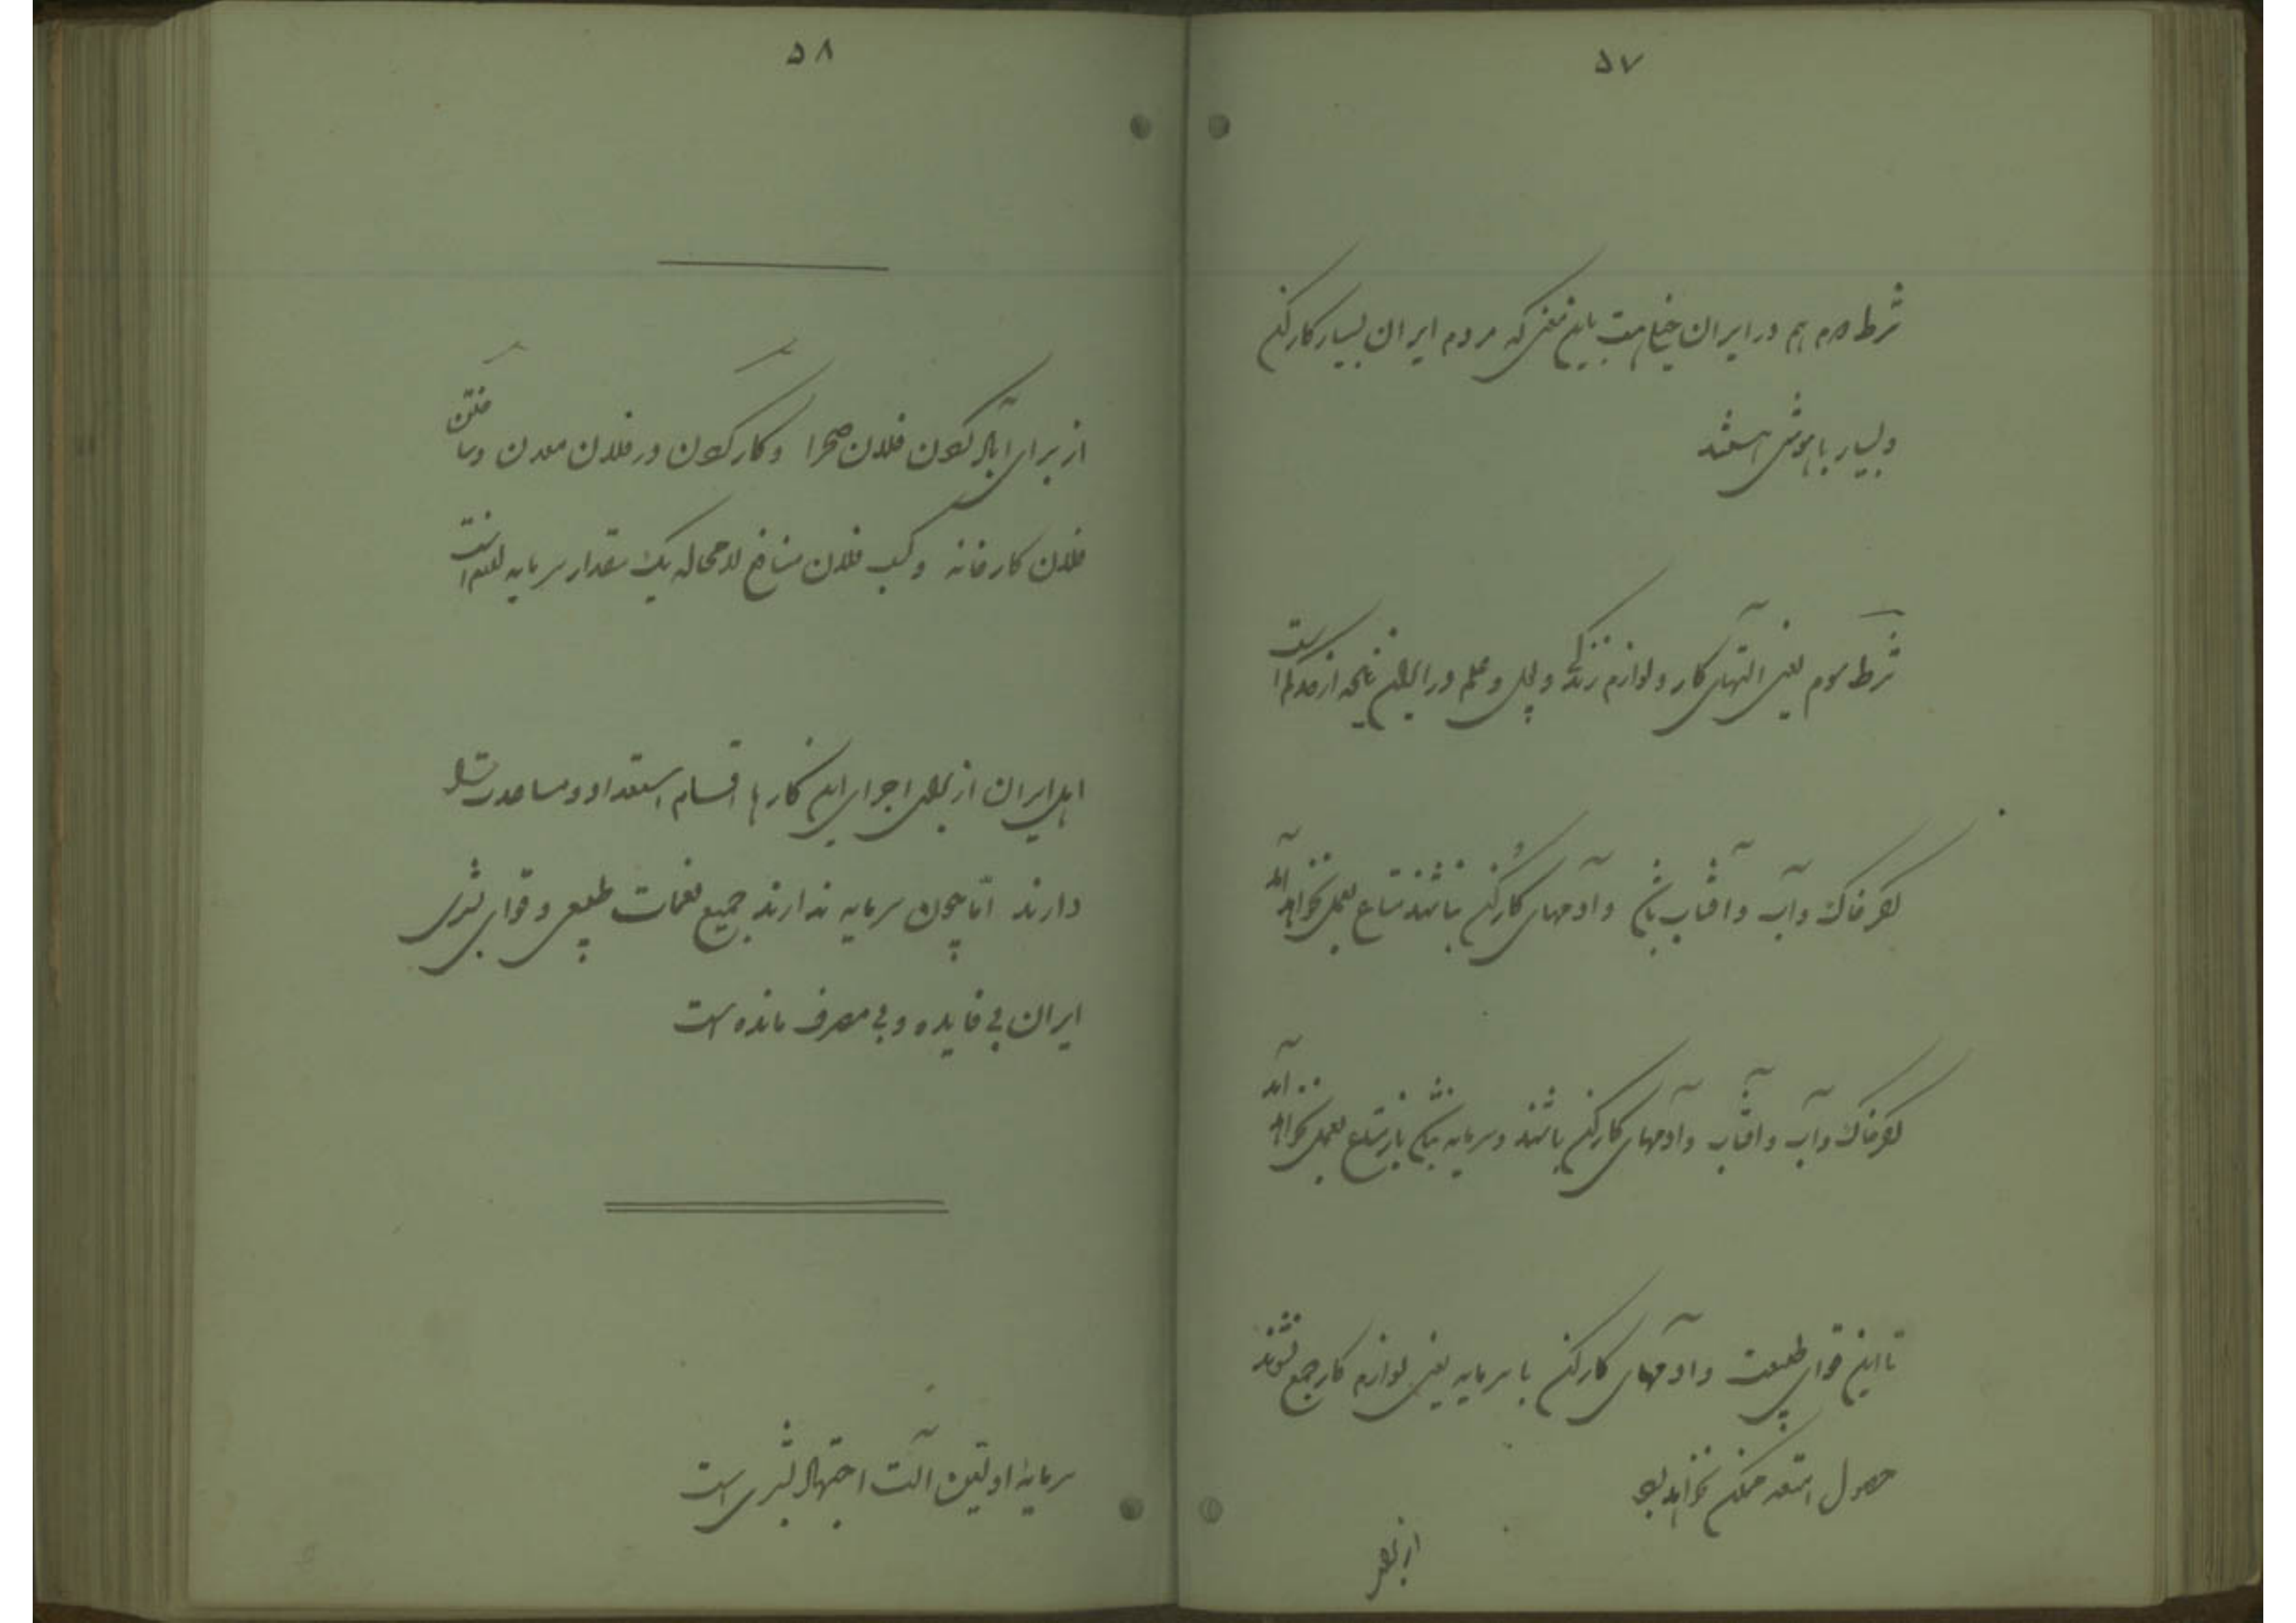 ۵۷
شرط دوم هم در ایران خیلی هست باین معنی که مردم ایران بسیار کارکن
و بسیار باهوش هستند
شرط سوم یعنی آلتهای کار و لوازم زندگی و پل و علم در ایران بالمره کم است
اگر خاک و آب و آفتاب باشد و آدمهای کارکن نباشند متاع بعمل نخواهد آمد
اگر خاک و آب و آفتاب و آدمهای کارکن باشند و سرمایه نباشد باز متاع بعمل نخواهد آمد
تا این قوای طبیعت و آدمهای کارکن با سرمایه یعنی لوازم کار جمع نشوند
حصول امتعه ممکن نخواهد بود
از برای
۵۸
از برای آباد کردن فلان صحرا و کار کردن در فلان معدن و ساختن
فلان کارخانه و کسب فلان منافع لامحاله یک مقدار سرمایه لازم است
اهل ایران از برای اجرای این کارها اقسام استعداد و مساعدت
دارند اما چون سرمایه ندارند جمیع نعمات طبیعی و قوای بشری
ایران بی فایده و بی مصرف مانده است
سرمایه اولین آلت اجتهاد بشری است